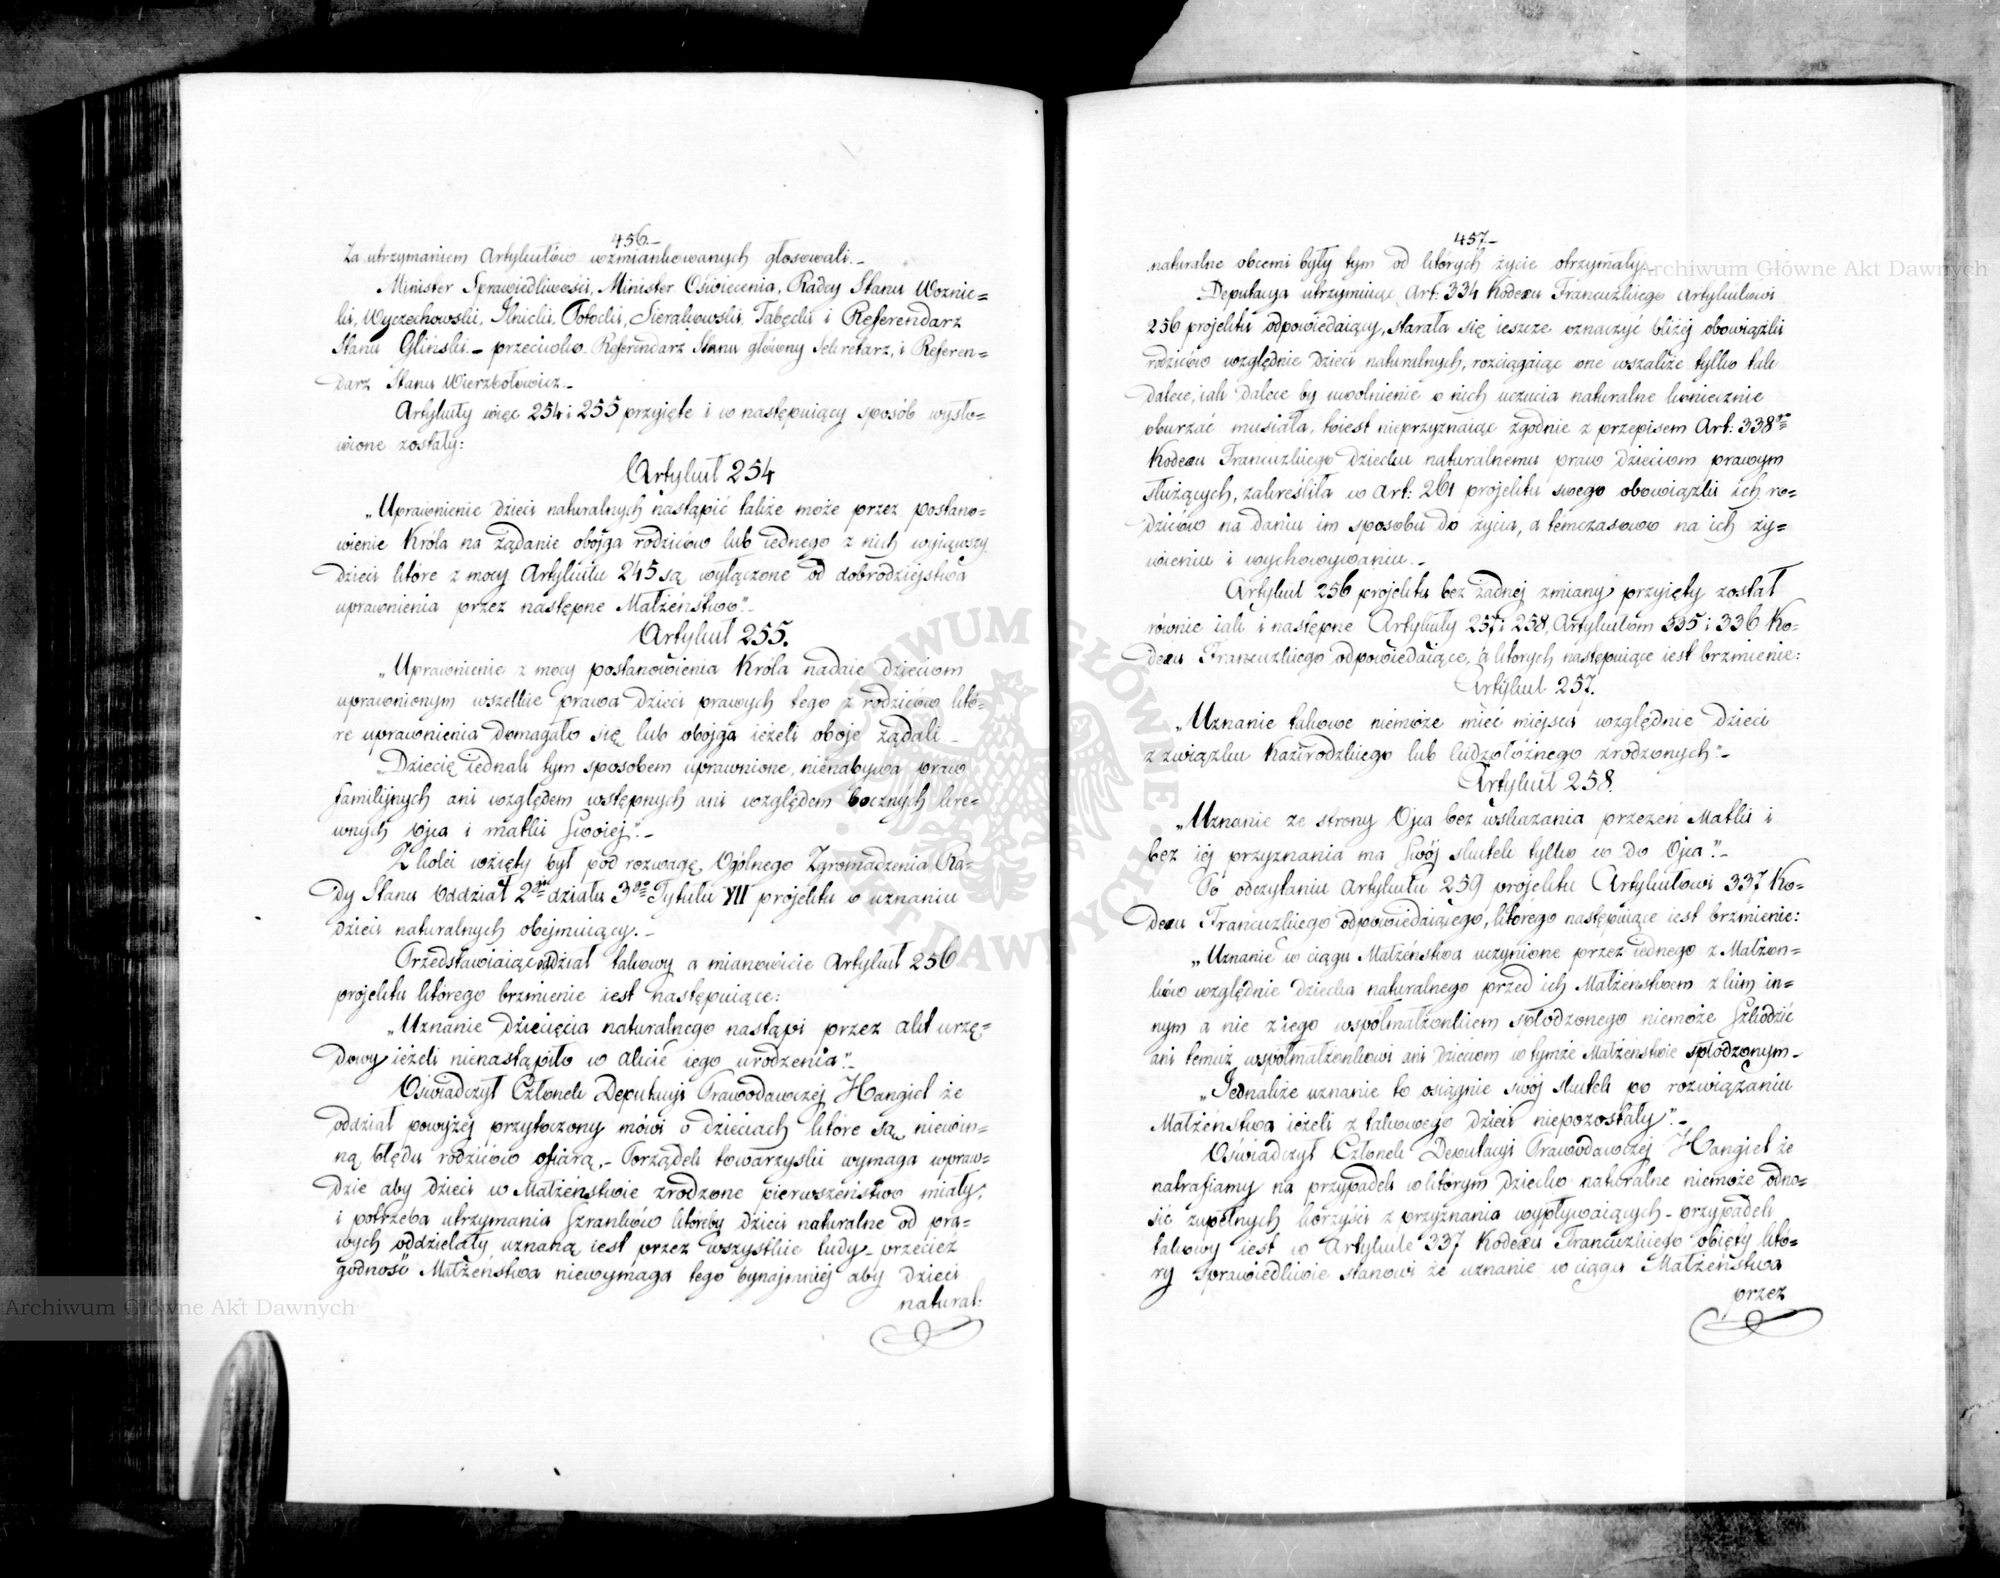 456.
Za utrzymaniem Artykułów wzmiankowanych głosowali.
Minister Sprawiedliwości, Minister Oświecenia, Radcy Stanu Woznic=
ki, Wyczechowski, Ilnicki, Potocki, Sierakowski, Tabęcki i Referendarz
Stanu Gliński – przeciwko Referendarz Stanu główny Sekretarz, i Referen=
darz Stanu Wierzbołowicz.
Artykuły więc 254 i 255 przyięte i w następuiący sposób wysło=
wione zostały:
Artykuł 254
„Uprawnienie dzieci naturalnych nastąpić także może przez postano=
wienie Króla na żądanie obojga rodziców lub iednego z nich wyiąwszy
dzieci które z mocy Artykułu 245 są wyłączone od dobrodziejstwa
uprawnienia przez następne Małżeństwo".
Artykuł 255.
„Uprawnienie z mocy postanowienia Króla nadaie dzieciom
uprawnionym wszelkie prawa dzieci prawych tego z rodziców któ=
re uprawnienia domagało się lub obojga ieżeli oboje żądali
„Dziecię iednak tym sposobem uprawnione, nienabywa praw
familijnych ani względem wstępnych ani względem bocznych kre=
wnych Ojca i matki Swoiej".
Z kolei wzięty był pod rozwagę Ogólnego Zgromadzenia Ra=
dy Stanu Oddział 2gi działu 3go Tytułu VII projektu o uznaniu
dzieci naturalnych obejmuiący.
Przedstawiaiąc oddział takowy a mianowicie Artykuł 256
projektu którego brzmienie iest następuiące:
„Uznanie Dziecięcia naturalnego nastąpi przez akt urzę=
dowy ieżeli nienastąpiło w akcie iego urodzenia".
Oświadczył Członek Deputacyi Prawodawczej Hangiel że
oddział powyżej przytoczony mówi o dzieciach które są niewin=
ną błędu rodziców ofiarą. – Porządek towarzyski wymaga wpraw=
dzie aby dzieci w Małżeństwie zrodzone pierwszeństwo miały,
i potrzeba utrzymania Szranków któreby dzieci naturalne od pra=
wych oddzielały uznaną iest przez wszystkie ludy – przecież
godność Małżeństwa niewymaga tego bynajmniej aby dzieci
natural:
457.
naturalne obcemi były tym od których życie otrzymały.
Deputacya utrzymuiąc Art: 334 Kodexu Francuzkiego Artykułowi
256 projektu odpowiedaiący, starała się ieszcze oznaczyć bliżej obowiązki
rodziców względnie dzieci naturalnych, rozciągaiąc one wszakże tylko tak
dalece, iak dalece by uwolnienie o nich uczucia naturalne koniecznie
oburzać musiała, toiest nieprzyznaiąc zgodnie z przepisem Art: 338go
Kodexu Francuzkiego dziecku naturalnemu praw dzieciom prawym
służących, zakreśliła w Art: 261 projektu swego obowiązki ich ro=
dziców na daniu im sposobu do życia, a témczasowo na ich ży=
wieniu i wychowywaniu.
Artykuł 256 projektu bez żadnej zmiany przyięty został
równie iak i następne Artykuły 257 i 258, Artykułom 335 i 336 Ko=
dexu Francuzkiego odpowiedaiące, a których następuiące iest brzmienie:
Artykuł 257.
„Uznanie takowe niemoże mieć miejsca względnie dzieci
z związku Kazirodzkiego lub cudzołóżnego zrodzonych".
Artykuł 258.
„Uznanie ze strony Ojca bez wskazania przezeń Matki i
bez iéj przyznania ma swój skutek tylko co do Ojca".
Po odczytaniu Artykułu 259 projektu Artykułowi 337 Ko=
dexu Francuzkiego odpowiedaiącego, którego następuiące iest brzmienie:
„Uznanie w ciągu Małżeństwa uczynione przez iednego z Małżon=
ków względnie dziecka naturalnego przed ich Małżeństwem z kim in=
nym a nie z iego współmałżonkiem spłodzonego niemoże Szkodzić
ani temuż współmałżonkowi ani dzieciom w tymże Małżeństwie spłodzonym –
„Jednakże uznanie to osiągnie swój skutek po rozwiązaniu
Małżeństwa ieżeli z takowego dzieci niepozostały".
Oświadczył Członek Deputacyi Prawodawczej Hangiel że
natrafiamy na przypadek w którym dziecko naturalne niemoże odno=
sić zupełnych korzyści z przyznania wypływaiących – przypadek
takowy iest w Artykule 337 Kodexu Francuzkiego obięty któ=
ry sprawiedliwie stanowi że uznanie w ciągu Małżeństwa
przez
Archiwum Główne Akt Dawnych
Archiwum Główne Akt Dawnych
ARCHIWUM GŁÓWNE AKT DAWNYCH